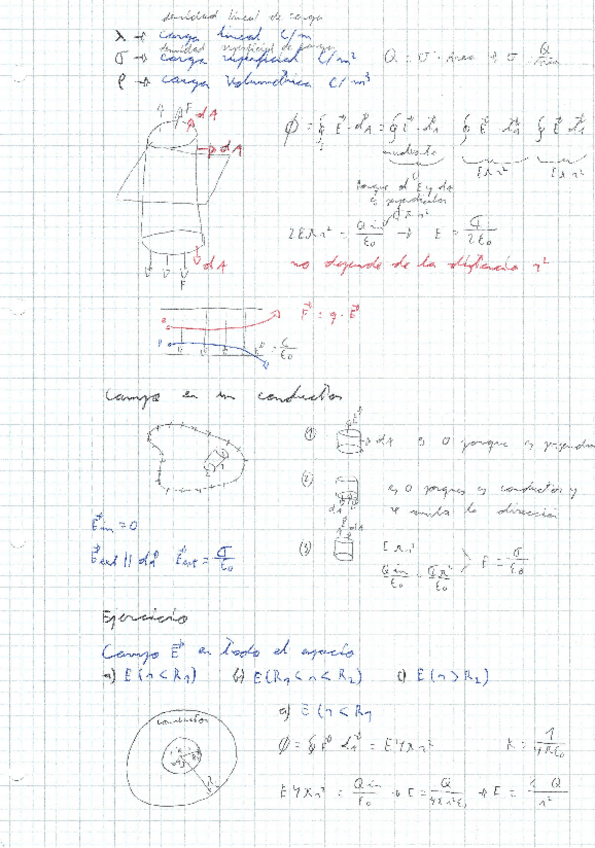 densidad lineal de carga
λ → carga lineal C/m
densidad superficial de carga
σ → carga superficial C/m² Q = σ · Area → σ = Q/Area
ρ → carga volumétrica C/m³
dA
dA
dA
F
Φ = ∮ E · dA = ∮ E · dA ∮ E dA ∮ E dA
porque el E y dA
es perpendicular
2Eπr² = Qin/ε₀ → E = σ/2ε₀
no depende de la distancia r²
F = q · E
Campo en un conductor
(1) dA es 0 porque es
(2) es 0 porque es conductor y
se anula la dirección
Ein = 0
Eext || dA Eext = σ/ε₀
(3) Eπr²
Qin/ε₀ = σπr²/ε₀ E = σ/ε₀
Ejercicio
Campo E en todo el espacio
a) E (r < R₁) b) E (R₁ < r < R₂) c) E (r > R₂)
conductor
a) E (r < R₁
Φ = ∮ E dA = E4πr² k = 1/4πε₀
E4πr² = Qin/ε₀ → E = Q/4πr²ε₀ → E =